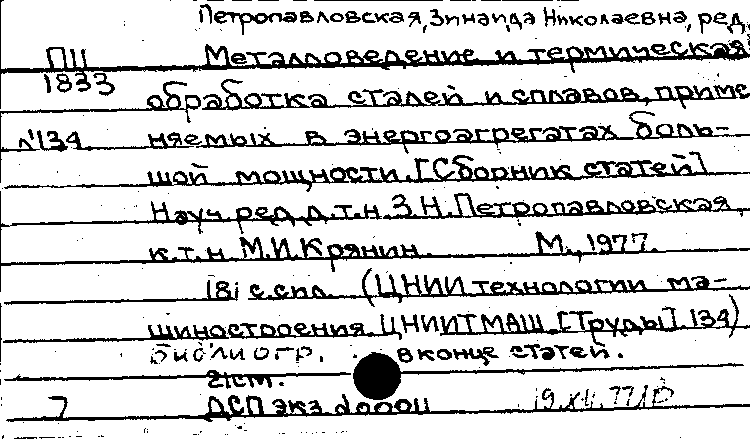 Петропавловская, Зинаида Николаевна, ред.
ПII Металловедение и термическая
1833 обработка сталей и сплавов, приме
№134 няемых в энергоагрегатах боль-
шой мощности. [Сборник статей]
Науч. ред. д.т.н. З.Н. Петропавловская,
к.т.н. М.И. Крянин. М., 1977.
181 с. спл. (ЦНИИ технологии ма-
шиностроения. ЦНИИТМАШ. [Труды]. 134)
библиогр. в конце статей.
21см.
7 ДСП экз. 19.XII.77